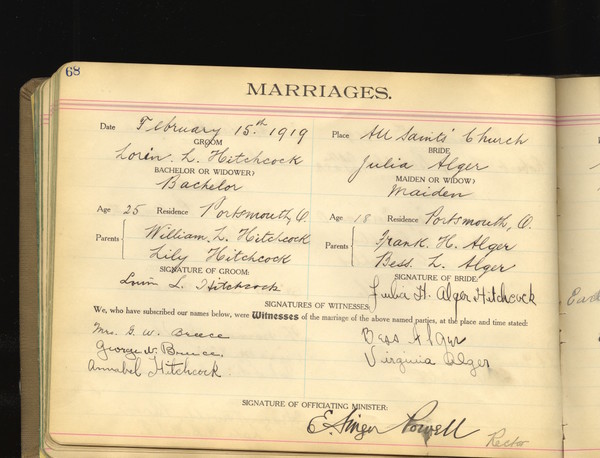 68
MARRIAGES.
Date February 15th 1919 Place All Saints' Church
GROOM BRIDE
Lorin. L. Hitchcock Julia Alger
BACHELOR OR WIDOWER? MAIDEN OR WIDOW?
Bachelor Maiden
Age 25 Residence Portsmouth, O. Age 18 Residence Portsmouth, O.
Parents William. L. Hitchcock Parents Frank. H. Alger
Lily Hitchcock Bess. L. Alger
SIGNATURE OF GROOM: SIGNATURE OF BRIDE
Lorin L. Hitchcock Julia H. Alger Hitchcock
SIGNATURES OF WITNESSES:
We, who have subscribed our names below, were Witnesses of the marriage of the above named parties, at the place and time stated:
Mrs. G. W. Breece Bess Alger
George W. Breece. Virginia Alger
Annabel Hitchcock
SIGNATURE OF OFFICIATING MINISTER:
E. Ainger Powell
Rector